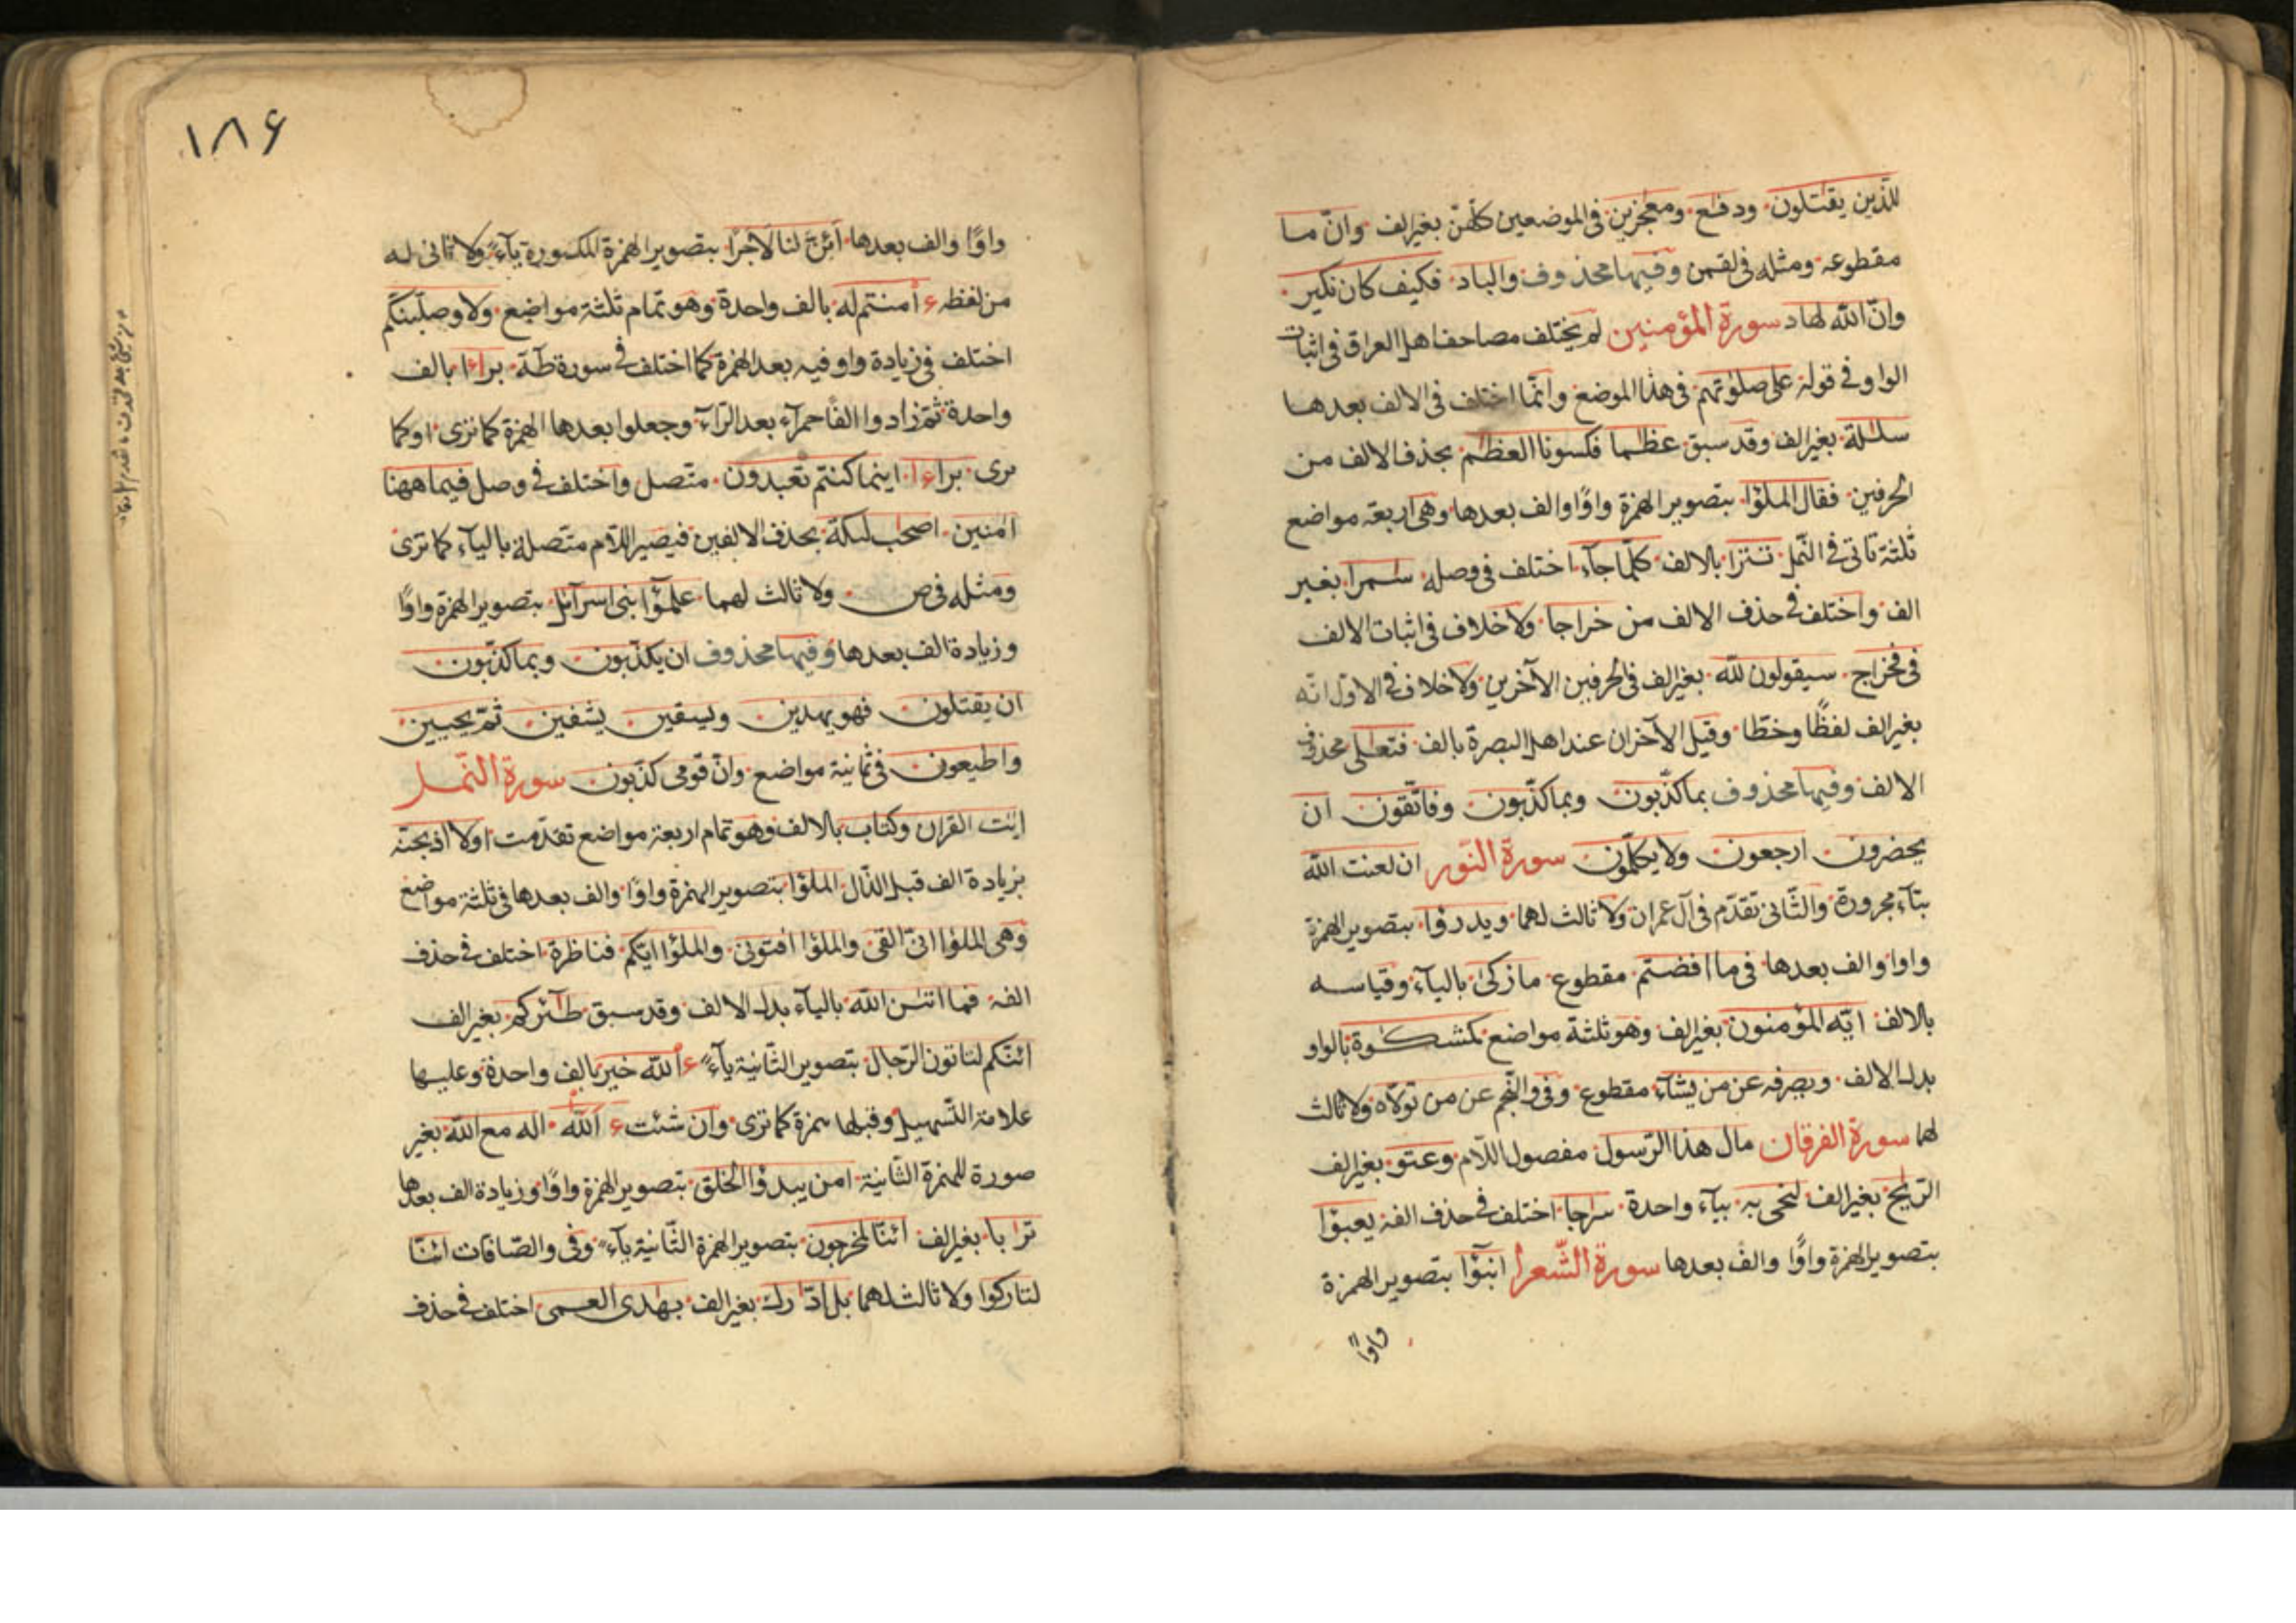 للّذين يقتلون ودفع ومعجزين في الموضعين كلّهنّ بغير الف وانّ ما
مقطوعه ومثله في لقمن وفيها محذوف والباد فكيف كان نكير
وانّ الله لهاد سورة المؤمنين لم يختلف مصاحف اهل العراق في اثبات
الواو في قوله على صلوتهم في هذا الموضع وانّما اختلف في الالف بعدها
سللة بغير الف وقد سبق عظما فكسونا العظم بحذف الالف من
الحرفين فقال الملؤا بتصوير الهمزة واوًا والف بعدها وهي اربعة مواضع
ثلثة تاتي في النّمل تترا بالالف كلّما جآء اختلف في وصله سمرا بغير
الف واختلف في حذف الالف من خراجا ولا خلاف في اثبات الالف
في فخراج سيقولون للّه بغير الف في الحرفين الآخرين ولا خلاف في الاوّل انّه
بغير الف لفظًا وخطّا وقيل الآخران عند اهل البصرة بالف فتعلى محذوف
الالف وفيها محذوف بما كذّبون وبما كذّبون وفاتّقون ان
يحضرون ارجعون ولا يكلّمون سورة النّور ان لعنت الله
بتآء مجرورة والثّاني تقدّم في آل عمران ولا ثالث لهما ويدرؤا بتصوير الهمزة
واوا والف بعدها في ما افضتم مقطوع ما زكى بالياء وقياسه
بالالف ايّه المؤمنون بغير الف وهو ثلثة مواضع كمشكوة بالواو
بدل الالف ويصرفه عن من يشآء مقطوع وفي والنّجم عن من تولّاه ولا ثالث
لهما سورة الفرقان مال هذا الرّسول مفصول اللّام وعتو بغير الف
الرّيح بغير الف لنحي به بيآء واحدة سراجا اختلف في حذف الفه يعبؤا
بتصوير الهمزة واوًا والف بعدها سورة الشّعرا انبؤا بتصوير الهمزة
واوًا
١٨۶
واوًا والف بعدها أئنّ لنا لاجرًا بتصوير الهمزة المكسورة يآءً ولا ثاني له
من لفظه ءامنتم له بالف واحدة وهو تمام ثلثة مواضع ولاوصلّبنكم
اختلف في زيادة واو فيه بعد الهمزة كما اختلف في سورة طه براءا بالف
واحدة ثمّ زادوا الفًا حمرآء بعد الرّآء وجعلوا بعدها الهمزة كما ترى او كما
ترى براءا اينما كنتم تعبدون متّصل واختلف في وصل فيما ههنا
امنين اصحب لئكة بحذف الالفين فيصير اللّام متصلة بالياء كما ترى
ومثله في ص ولا ثالث لهما علمؤا بني اسرآئل بتصوير الهمزة واوًا
وزيادة الف بعدها وفيها محذوف ان يكذّبون وبما كذّبون
ان يقتلون فهو يهدين ويسقين يشفين ثمّ يحيين
واطيعون في ثمانية مواضع وانّ قومي كذّبون سورة النّمل
ايت القران وكتاب بالالف وهو تمام اربعة مواضع تقدّمت اولا اذبحنّه
بزيادة الف قبل الذّال الملؤا بتصوير الهمزة واوًا والف بعدها في ثلثة مواضع
وهي الملؤا انّي القي والملؤا افتوني والملؤا ايّكم فناظرة اختلف في حذف
الفه فما اتين الله بالياء بدل الالف وقد سبق طئركم بغير الف
ائنّكم لتاتون الرّجال بتصوير الثّانية يآءً ءالله خير بالف واحدة وعليها
علامة التّسهيل وقبلها همزة كما ترى وان شئت ءآلله اله مع الله بغير
صورة للهمزة الثّانية امن يبدؤا الخلق بتصوير الهمزة واوًا وزيادة الف بعدها
ترابا بغير الف ائنّا لمخرجون بتصوير الهمزة الثّانية يآءً وفي والصّافات ائنّا
لتاركوا ولا ثالث لهما بل ادّارك بغير الف بهدى العمى اختلف في حذف